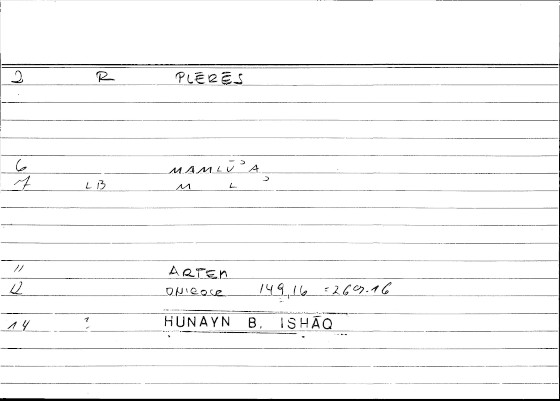 2 R PLĒRĒS
6 MAMLŪ'A
7 LB M L '
11 ARTEM
12 ONIROCR 149,16 = 269.16
14 ? HUNAYN B. ISHĀQ